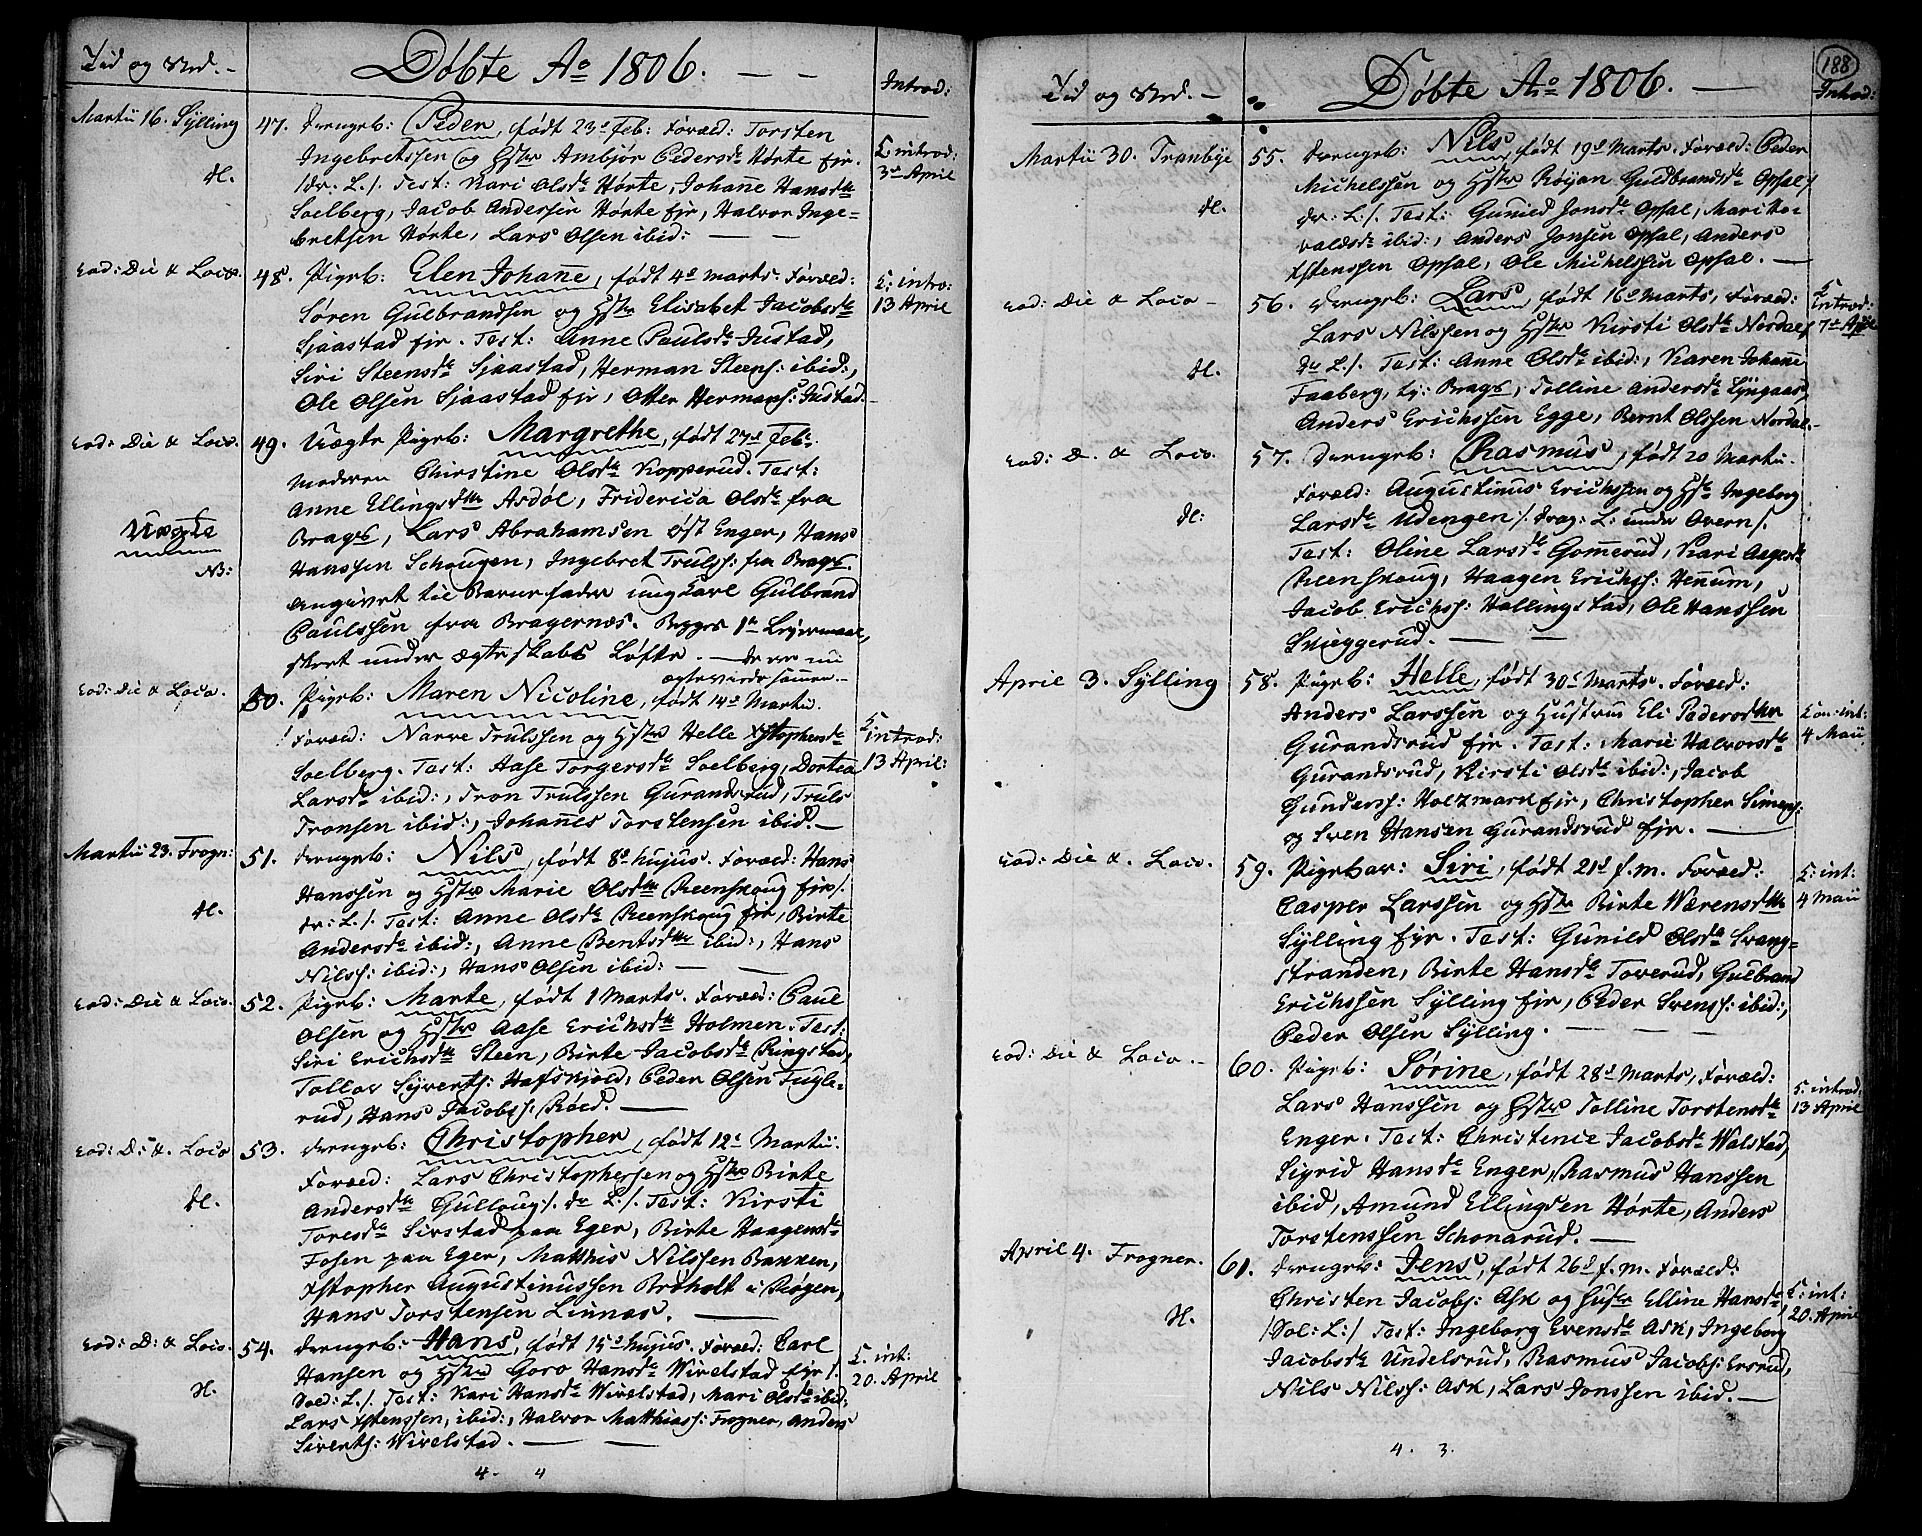 Tid og Sted. –
Døbte Ao 1806. — –
Introd:
Martii 16. Sylling
47. Drengeb: Peder, født 23d Feb: Foræld: Torsten
Ingebretssen og Hstr Ambjør Pedersdr Hørte fir.
/dr. L./. Test: Kari Olsdr Hørte, Johanne Hansdtr
Soelberg, Jacob Andersen Hørte fir, Halvor Inge=
bretsen Hørte, Lars Olsen ibid: — —
introd:
3d April
eod: Die & Loco.
48. Pigeb: Elen Johanne, født 4d Marts. Foræld:
Søren Gulbrandsen og Hstr Elisabet Jacobsdr
Sjaastad fir. Test: Anne Paulsdr Justad,
Siri Steensdr Sjaastad, Herman Steens: ibid:,
Ole Olsen Sjaastad fir, Otter Hermans: Justad.
intro:
13 April
eod: Die & Loco.
49. Uægte Pigeb: Margrethe, født 27d Feb:
Moderen Chirstine Olsdr Kopperud. Test:
Anne Ellingsdtr Asdøl, Friderica Olsdr fra
Uægte
NB:
Brags, Lars Abrahamsen Øst Enger, Hans
Hanssen Schougen, Ingebret Truls: fra Brags.
angivet til Barnefader ungkarl Gulbrand
Paulssen fra Bragernæs. Begges 1te Leyermaal,
skeet under ægteskabs Løfte. — De ere nu
egteviede sammen —
eod: Die & Loco.
50. Pigeb: Maren Nicoline, født 14d Martii.
Foræld: Narve Trulssen og Hstr Helle Xstophersdr
Soelberg. Test: Aase Torgersdr Soelberg, Dortea
Larsdr ibid:, Tron Trulssen Gurandsrud, Truls
Tronsen ibid:, Johannes Torstensen ibid. —
introd:
13 April:
Martii 23. Frogn:
51. Drengeb: Nils, født 8d hujus. Foræld: Hans
Hanssen og Hstr Marie Olsdtr Reenskoug fir/.
dr: L./. Test: Anne Olsdr Reenskoug fir, Birte
Andersdr ibid:, Anne Bentsdtr ibid:, Hans
Nilss: ibid:, Hans Olsen ibid: — —
eod: Die & Loco.
52. Pigeb: Marte, født 1 Marts. Foræld: Paul
Olsen og Hstr Aase Erichsdr Holmen. Test:
Siri Erichsdtr Steen, Birte Jacobsdr Ringstad,
Tollov Syverts: Hafskjold, Peder Olsen Fugle-
rud, Hans Jacobss: Røed. —
eod: D: &. Loco
53. Drengeb: Christopher, født 12d Martii.
Foræld: Lars Christophersen og Hstr Birte
Andersdtr Gulloug/. dr L./. Test: Kirsti
Toresdr Sirstad paa Eger, Birte Haagensdr
Fosen paa Eger, Matthis Nilssen Bakken,
Xstopher Augustinussen Brøholt i Røgen,
Hans Torstensen Linnæs. —
eod: D: & Loco.
54. Drengeb: Hans, født 15d hujus. Foræld: Carl
Hansen og Hstr Goro Hansdr Wivelstad fir/.
Sol: L./. Test: Kari Hansdr Wivelstad, Mari Olsdr ibid:
Lars Xstenssen, ibid:, Halvor Matthias: Frogner, Anders
Siverts: Wivelstad. — —
int:
20. April
4. 4
188
Tid og Sted. –
Døbte Ao 1806. —
Introd:
Martii 30. Tranbye
55. Drengeb: Nils, født 19d Marts. Foræld: Peder
Michelssen og Hstr Røijan Guldbrandsdr Opsal/
dr: L./. Test: Gunied Jonsdr Opsal, Mari Ho-
valdsdr ibid:, Anders Jonsen Opsal, Anders
Xstenssen Opsal, Ole Michelssen Opsal. —
eod: Die & Loco –
56. Drengeb: Lars, født 16d Marts, Foræld:
Lars Nilssen og Hstr Kirsti Olsdr Nordal/
dr L./. Test: Anne Olsdr ibid:, Karen Johanne
Faaberg, ty: Brags, Tolline Andersdr Lyngaas,
Anders Erichssen Egge, Bernt Olssen Nordal. –
introd:
7d April
eod: D. & Loco.
57. Drengeb: Rasmus, født 20 Martii.
Foræld: Augustinus Erichssen og Hstr Ingeborg
Larsdr Udengen/. Drag: L: under Overn/.
Test: Oline Larsdr Gomerud, Kari Aagesdr
Reenskoug, Haagen Erichs: Hennum,
Jacob Erichs: Hallingstad, Ole Hanssen
Skieggerud. — —
April 3. Sylling
58. Pigeb: Helle, født 30d Marts. Foræld:
Anders Larssen og Hustrue Eli Pedersdtr
Gurandsrud fir. Test: Marie Halvorsdr
Gurandsrud, Kirsti Olsdr ibid:, Jacob
Gunders: Holtzmark fir, Christopher Simens:
og Sven Hansen Gurandsrud fir. —
int:
4 Maii
eod: Die &. Loco.
59. Pigebar: Siri, født 21d f.m. Foræld:
Casper Larssen og Hstr Birte Wærensdtr
Sylling fir. Test: Gunild Olsdr Svang=
stranden, Birte Hansdr Toverud, Gulbrand
Erichssen Sylling fir, Peder Svens: ibid:,
Peder Olsen Sylling. — — —
int:
4 Maii
eod: Die & Loco. –
60. Pigeb: Sørine, født 28d Marts, Foræld:
Lars Hanssen og Hstr Tolline Torstensdr
Enger. Test: Christence Jacobsdr Walstad,
Sigrid Hansdr Enger, Rasmus Hanssen
ibid, Amund Ellingsen Hørte, Anders
Torstenssen Schonarud. —
introd
13 April
April 4. Frogner.
61. Drengeb: Jens, født 26d f.m. Foræld:
Christen Jacobs: Ask og Hustr Elline Hansdr
/Sol: L:/ Test: Ingeborg Evensdr Ask, Ingeborg
Jacobsdr Undelsrud, Rasmus Jacobs: Ersrud,
Nils Nilss: Ask, Lars Jonssen ibid. —
int:
20. April
4. 3.